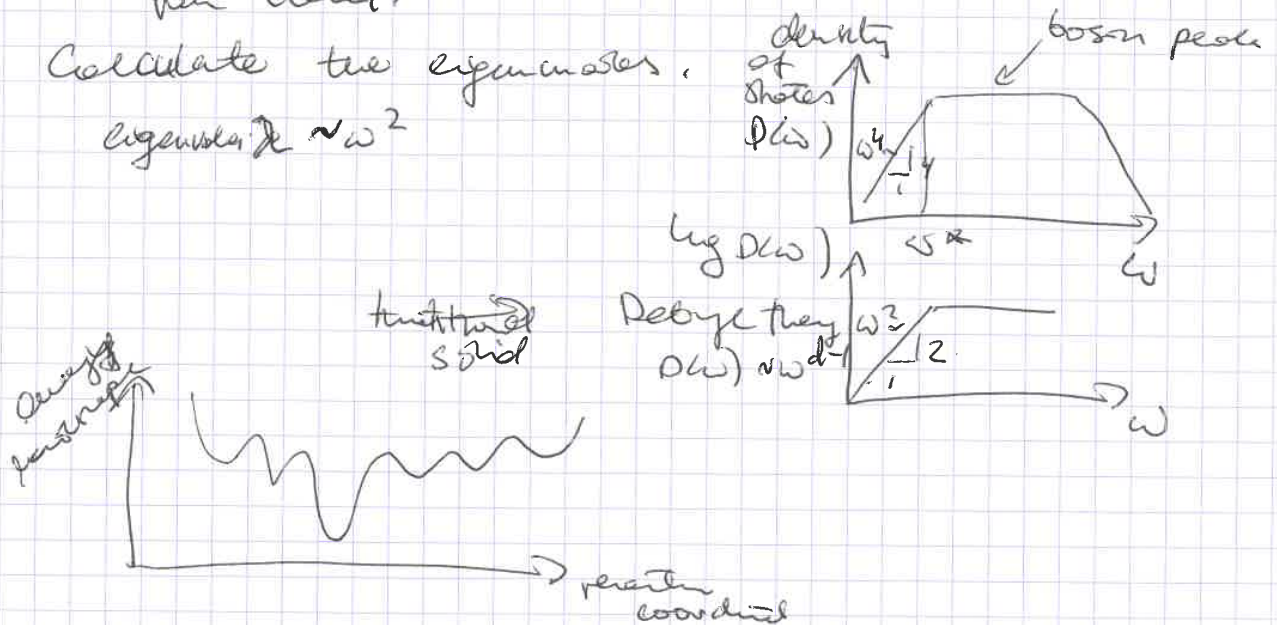 Calculate the eigenmodes.
eigenvalue λ ~ ω²
density
of
states
D(ω)
boson peak
ω⁴
1
4
ω*
ω
log D(ω)
Debye theory
D(ω) ~ ω^d-1
ω²
2
1
ω
solid
energy
reaction
coordinate